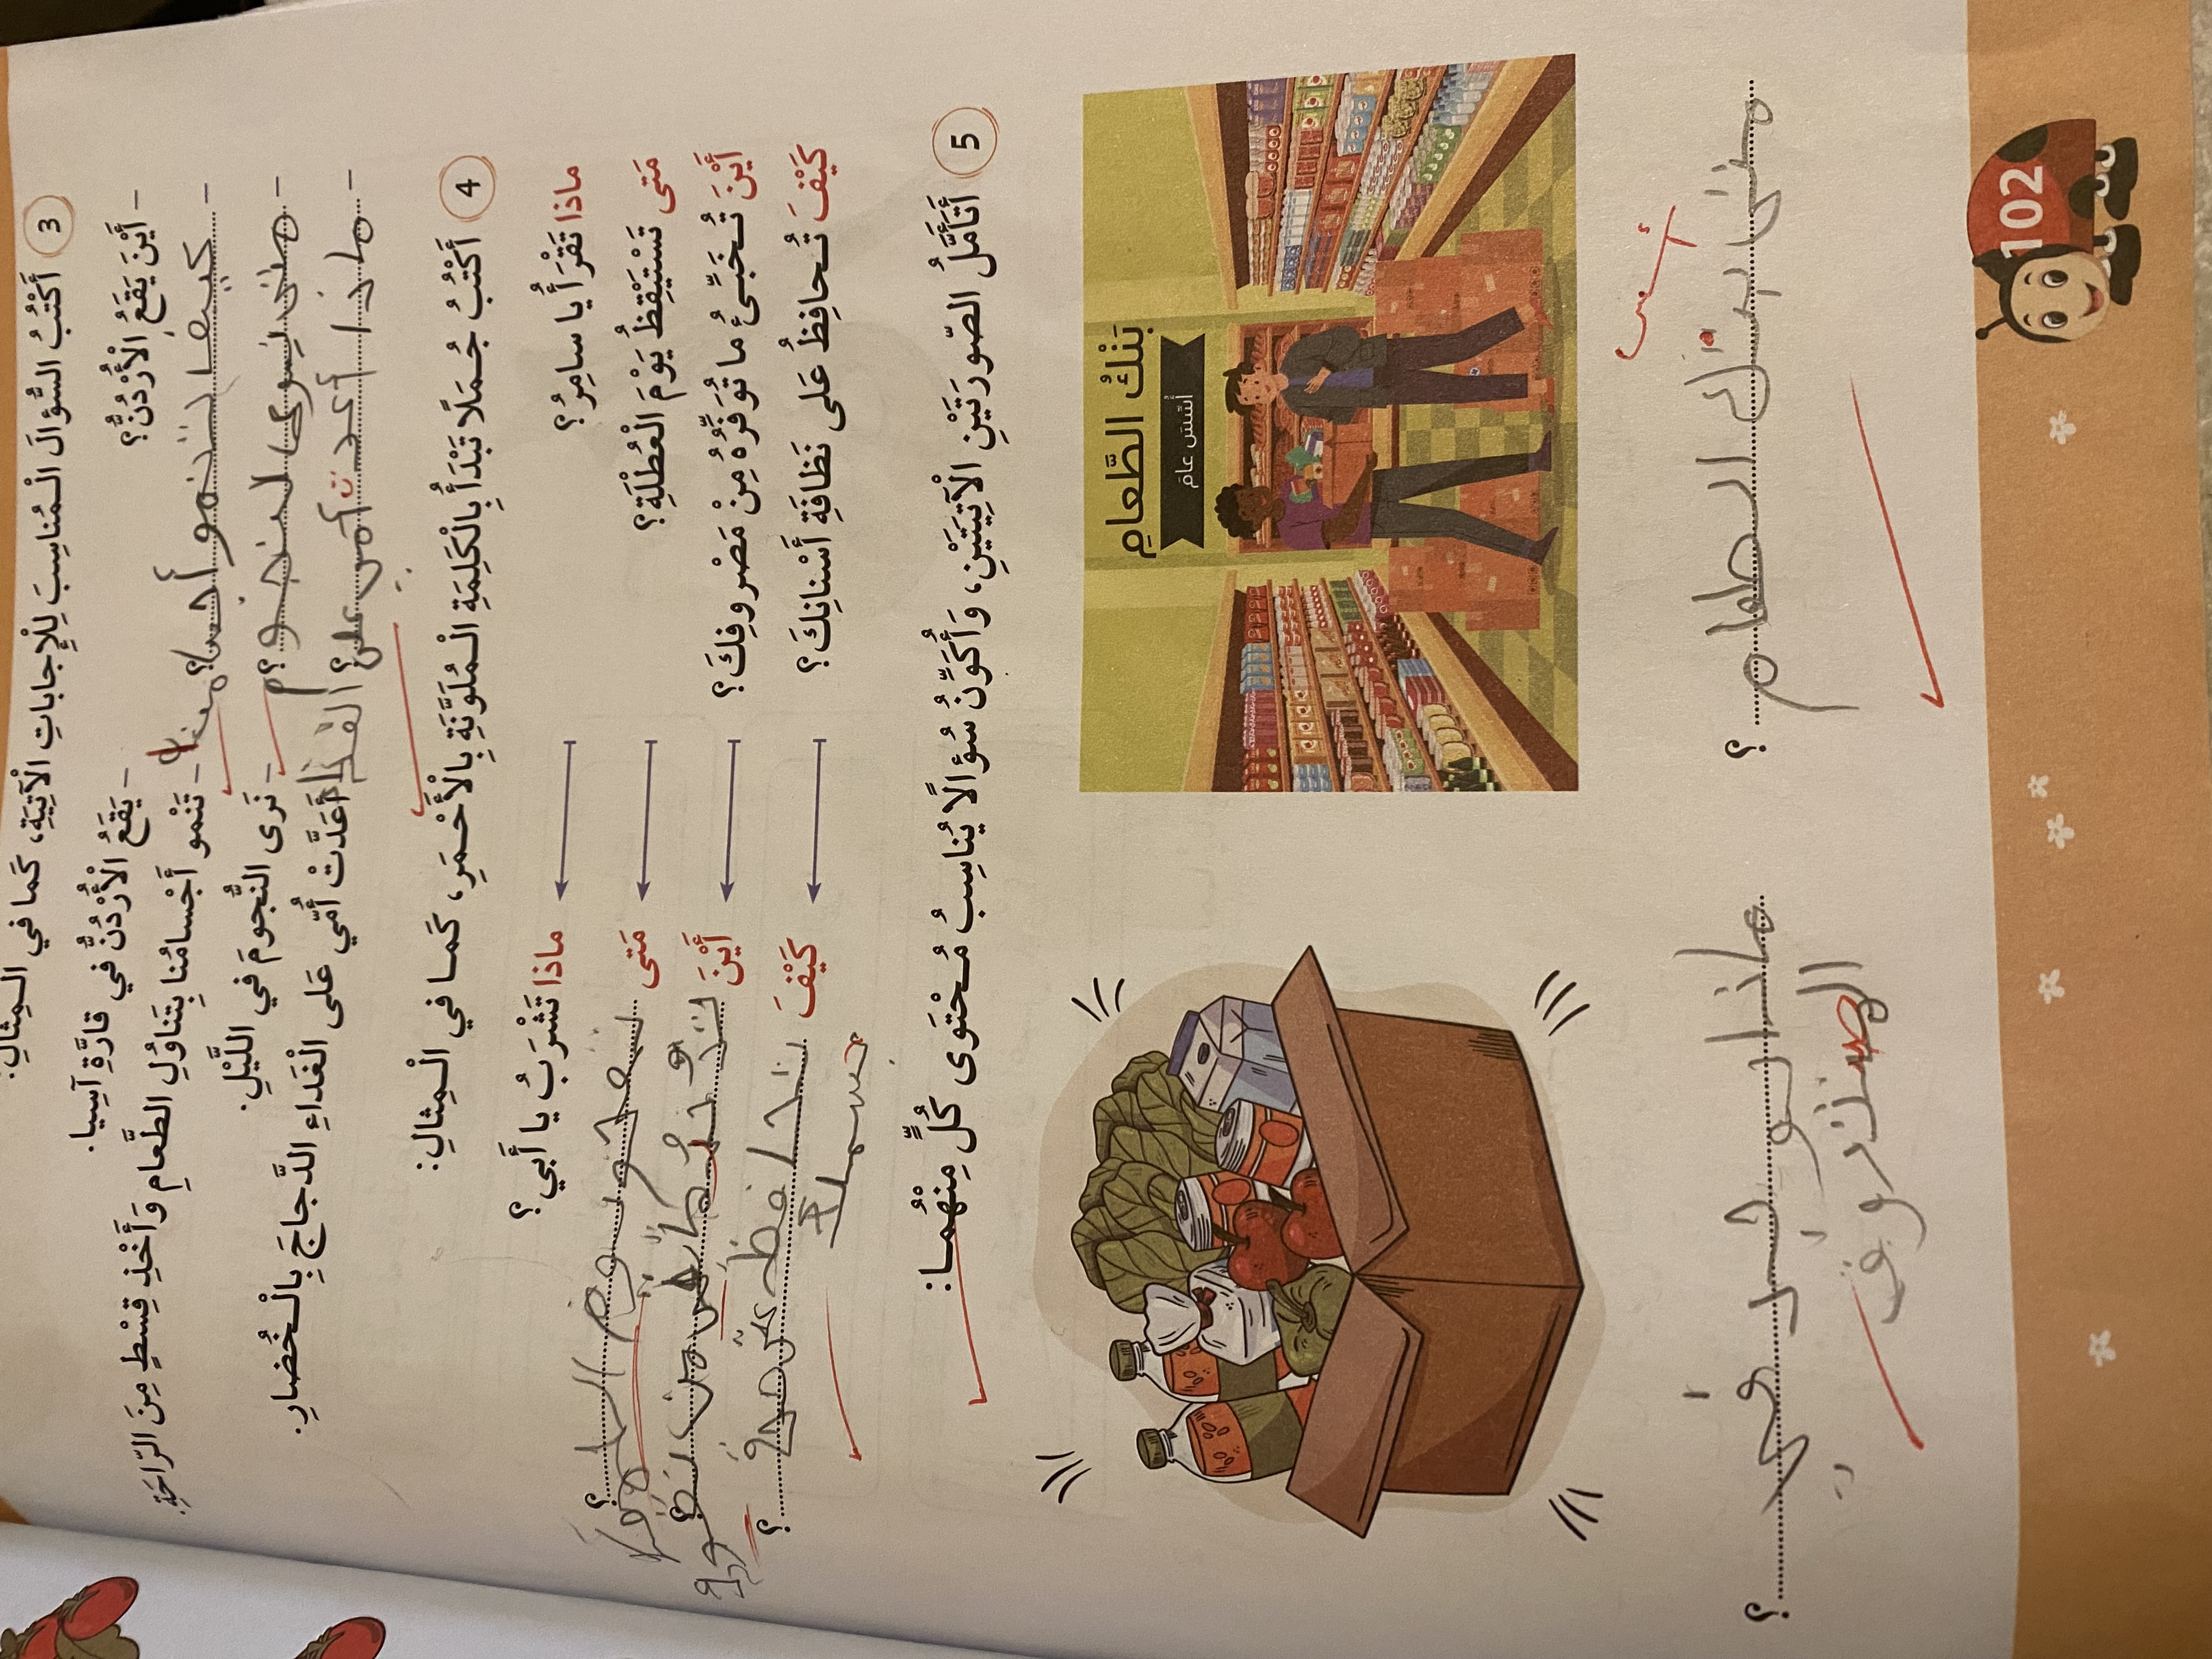 3 أَكْتُبُ السُّؤالَ الْمُناسِبَ لِلْإِجاباتِ الْآتِيَةِ، كَما في الْمِثالِ:
- أَيْنَ يَقَعُ الْأُرْدُنُّ؟ - يَقَعُ الْأُرْدُنُّ في قارَّةِ آسِيا.
- كيف تنمو أجسامنا؟ - تَنْمو أَجْسامُنا بِتَناوُلِ الطَّعامِ وَأَخْذِ قِسْطٍ مِنَ الرّاحَةِ.
- متى نرى النجوم؟ - نَرى النُّجومَ في اللَّيْلِ.
- ماذا أعدت أمي على الغداء؟ أَعَدَّتْ أُمّي عَلى الْغَداءِ الدَّجاجَ بِالْخُضارِ.
4 أَكْتُبُ جُمَلًا تَبْدَأُ بِالْكَلِمَةِ الْمُلَوَّنَةِ بِالْأَحْمَرِ، كَما في الْمِثالِ:
ماذا تَقْرَأُ يا سامِرُ؟ ماذا تَشْرَبُ يا أَبي؟
مَتى تَسْتَيْقِظُ يَوْمَ الْعُطْلَةِ؟ مَتى
أَيْنَ تُخَبِّئُ ما تُوَفِّرُهُ مِنْ مَصْروفِكَ؟ أَيْنَ
كَيْفَ تُحافِظُ عَلى نَظافَةِ أَسْنانِكَ؟ كَيْفَ تحافظ على ؟
5 أَتَأَمَّلُ الصّورَتَيْنِ الْآتِيَتَيْنِ، وَأُكَوِّنُ سُؤالًا يُناسِبُ مُحْتَوى كُلٍّ مِنْهُما:
بَنْكُ الطَّعامِ
أُسِّسَ عام
متى الطعام ؟
ماذا يوجد في ؟
الصندوق
102